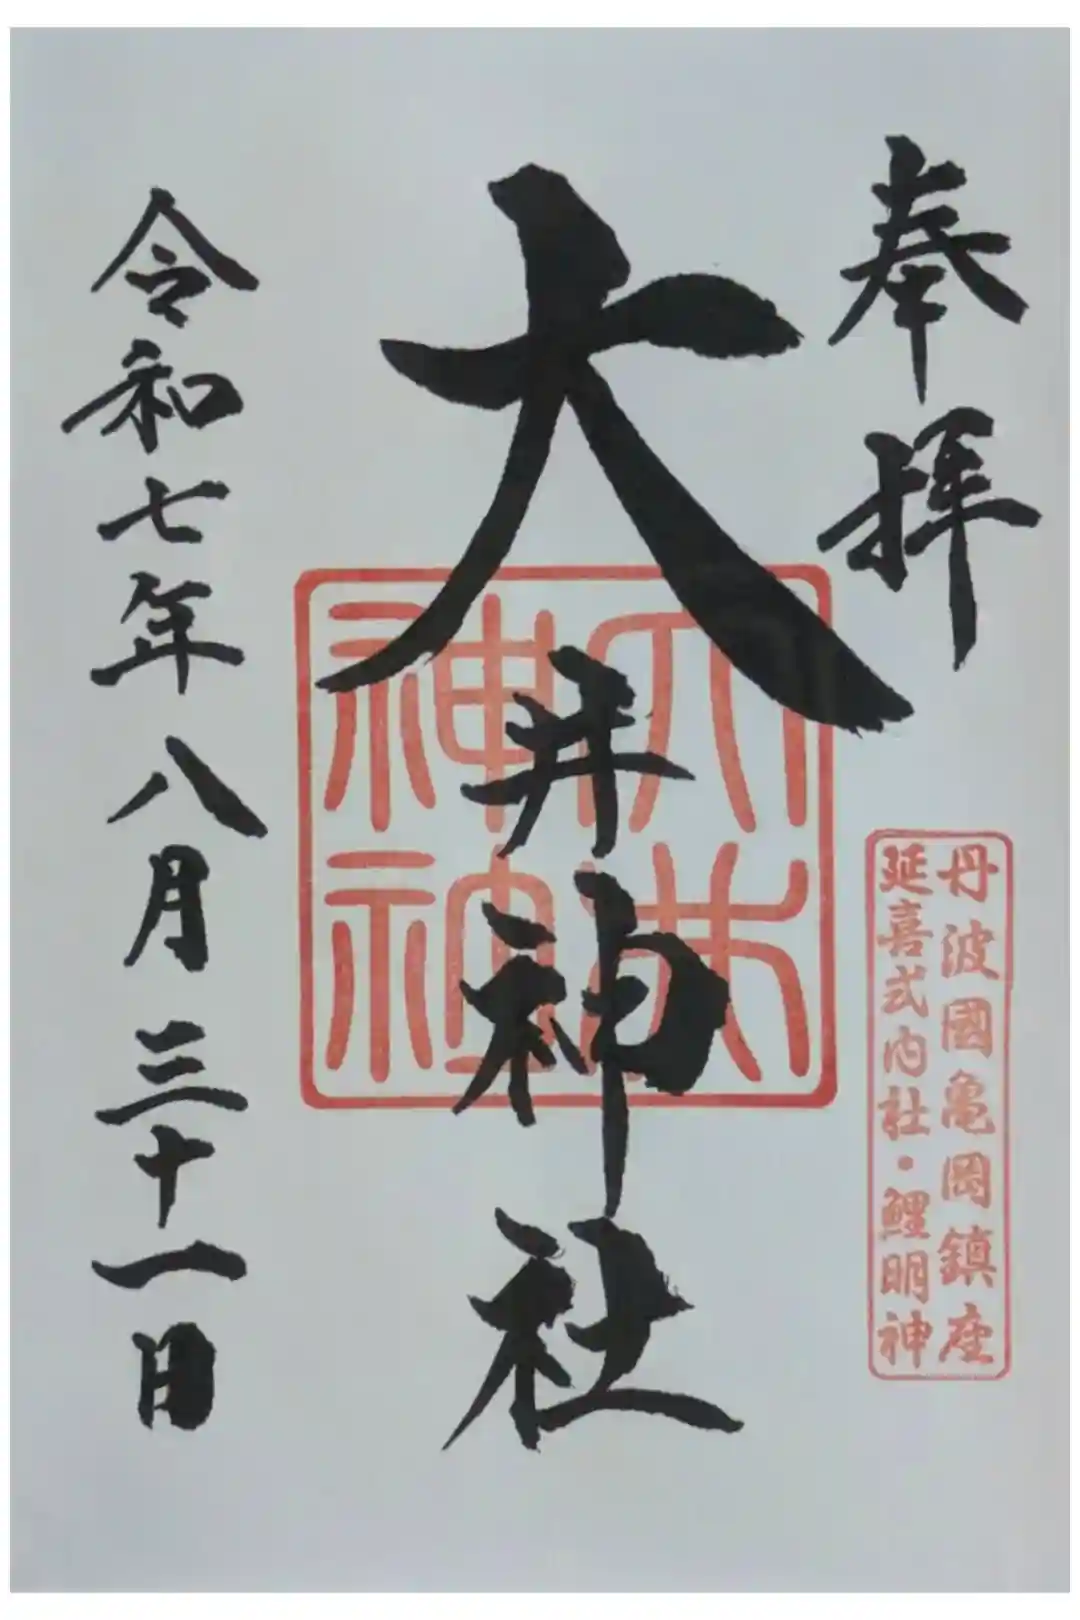 奉拝
丹波國亀岡鎮座
延喜式内社・鯉明神
大井神社
令和七年八月三十一日